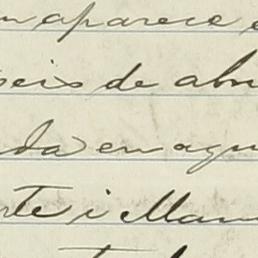 aparece
seis de abri
da en agu
rte i Mam